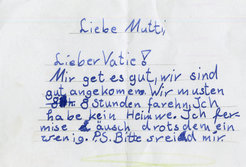 Liebe Mutti,
Lieber Vatie!
Mir get es gut, wir sind
gut angekomen. Wir musten
8 Stunden farehn. Ich
habe kein Heimwe. Ich fer-
mise euch drotsdem ein
wenig. P.S. Bitte sreid mir